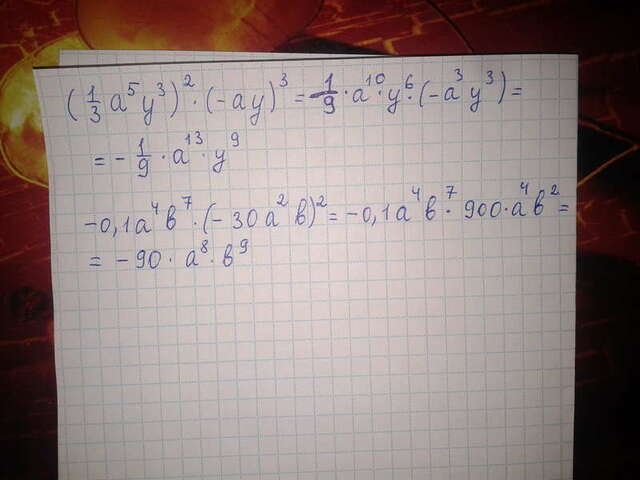 (1/3 a⁵y³)² · (-ay)³ = 1/9 · a¹⁰ · y⁶ · (-a³y³) =
= - 1/9 · a¹³ · y⁹
-0,1a⁴b⁷ · (-30a²b)² = -0,1a⁴b⁷ · 900 · a⁴b² =
= -90 · a⁸ · b⁹